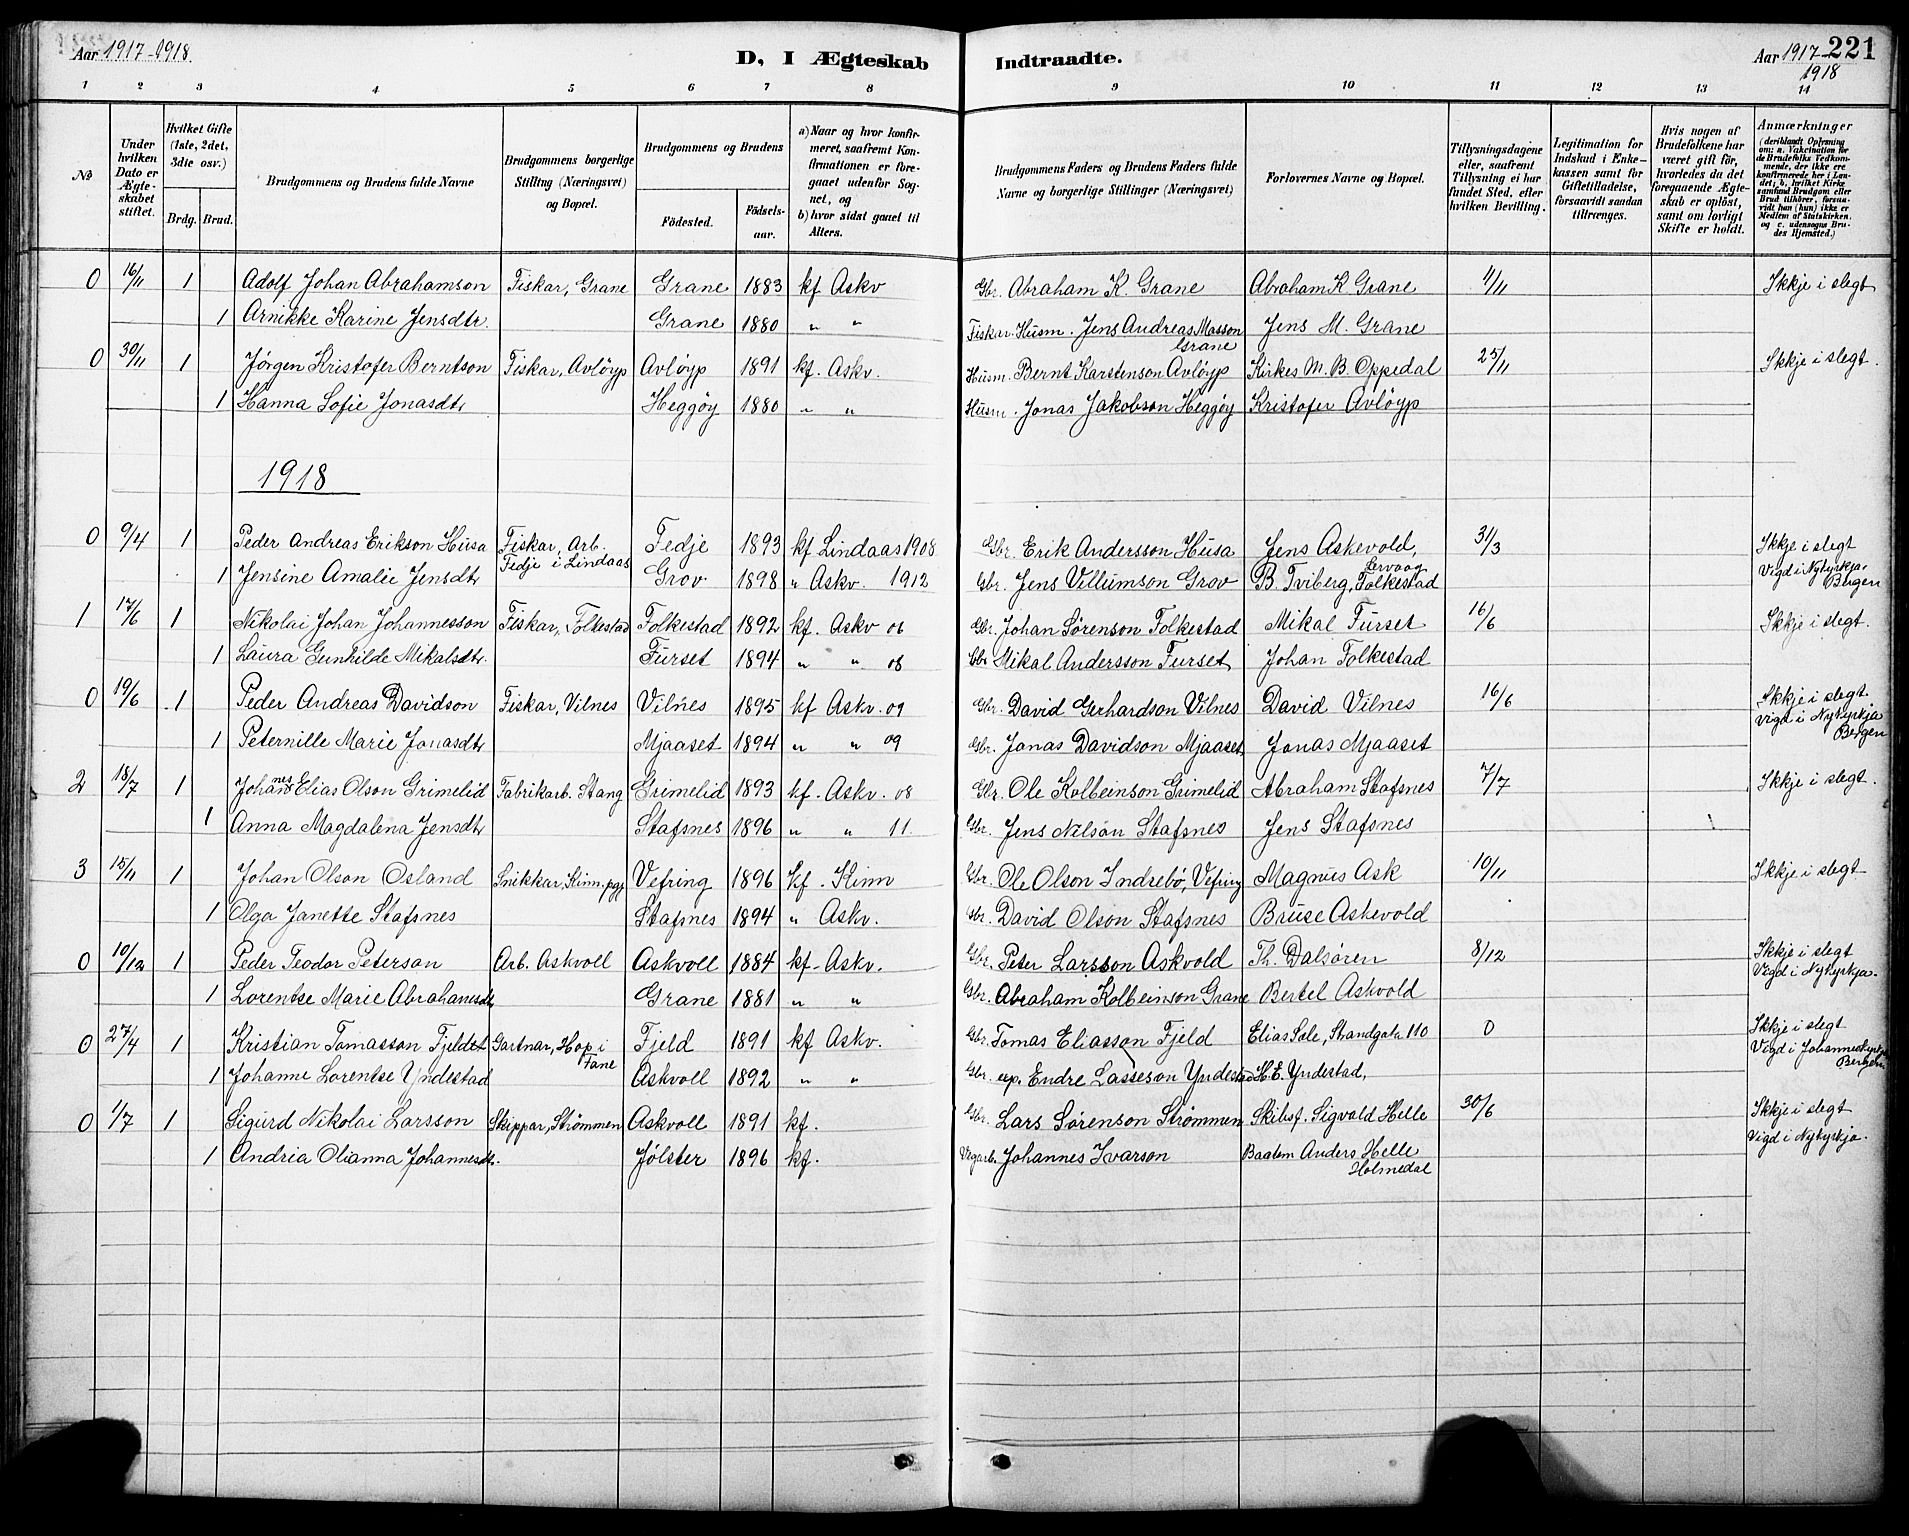 Aar 1917-1918.
D, I Ægteskab Indtraadte.
Aar 1917-1918
221
1 2 3 4 5 6 7 8 9 10 11 12 13 14
No
Under hvilken Dato er Ægteskabet stiftet.
Hvilket Gifte (1ste, 2det, 3die osv.)
Brdg. Brud.
Brudgommens og Brudens fulde Navne
Brudgommens borgerlige Stilling (Næringsvei) og Bopæl.
Brudgommens og Brudens
Fødested. Fødselsaar.
a) Naar og hvor konfirmeret, saafremt Konfirmationen er foregaaet udenfor Sognet, og
b) hvor sidst gaaet til Alters.
Brudgommens Faders og Brudens Faders fulde Navne og borgerlige Stillinger (Næringsvei)
Forlovernes Navne og Bopæl.
Tillysningsdagene eller, saafremt Tillysning ei har fundet Sted, efter hvilken Bevilling.
Legitimation for Indskud i Enkekassen samt for Giftetilladelse, forsaavidt saadan tiltrænges.
Hvis nogen af Brudefolkene har været gift før, hvorledes da det foregaaende Ægteskab er opløst, samt om lovligt Skifte er holdt.
Anmærkninger (deriblandt Oplysning om: a. Vakcination for de Brudefolks Vedkommende, der ikke ere konfirmerede her i Landet; b. hvilket Kirkesamfund Brudgom eller Brud tilhører, forsaavidt han (hun) ikke er Medlem af Statskirken, og c. udensogns Brudes Hjemsted.)
0 16/11 1 Adolf Johan Abrahamson Fiskar, Grane Grane 1883 kf Askv Gbr. Abraham K. Grane Abraham K Grane 4/11 Ikkje i slegt
1 Arnikke Karine Jensdtr. Grane 1880 " " Fiskar. Husm. Jens Andreas Masson Grane Jens M. Grane
0 30/11 1 Jørgen Kristofer Berntson Fiskar, Avløyp Avløyp 1891 kf. Askv. Husm. Bernt Karstenson Avløyp Kirkes M. B. Oppedal 25/11 Ikkje i slegt.
1 Hanna Sofie Jonasdtr Heggøy 1880 " " Husm. Jonas Jakobson Heggøy Kristofer Avløyp
1918
0 9/4 1 Peder Andreas Erikson Husa Fiskar, Arb. Fedje i Lindaas Fedje 1893 kf Lindaas 1908 Gbr. Erik Andersson Husa Jens Askevold, 31/3 Ikkje i slegt Vigd i Nykyrkja. Bergen
1 Jensine Amalie Jensdtr Grov 1898 " Askv. 1912 Gbr. Jens Villumson Grov B. Tviberg, Folkestad
1 17/6 1 Nikolai Johan Johannesson Fiskar, Folkestad Folkestad 1892 kf. Askv 06 Gbr. Johan Sørenson Folkestad Mikal Furset 16/6 Ikkje i slegt.
1 Laura Gunhilde Mikalsdtr. Furset 1894 " " 08 Gbr Mikal Andersson Furset Johan Folkestad
0 19/6 1 Peder Andreas Davidson Fiskar, Vilnes Vilnes 1895 kf Askv. 09 Gbr. David Gerhardson Vilnes David Vilnes 16/6 Ikkje i slegt. vigd i Nykyrkja Bergen
1 Peternille Marie Jonasdtr Mjaaset 1894 " " 09 Gbr. Jonas Davidson Mjaaset Jonas Mjaaset
2 18/7 1 Johannes Elias Olson Grimelid Fabrikarb. Stang Grimelid 1893 kf. Askv. 08 Gbr. Ole Kolbeinson Grimelid Abraham Stafsnes 7/7 Ikkje i slegt.
1 Anna Magdalena Jensdtr Stafsnes 1896 " " 11. Gbr. Jens Nilson Stafsnes Jens Stafsnes
3 15/11 1 Johan Olson Osland Snikkar, Kinn pgj Vefring 1896 kf. Kinn Gbr. Ole Olson Indrebø, Vefring Magnus Ask 10/11 Ikkje i slegt
1 Olga Janette Stafsnes Stafsnes 1894 " Askv. Gbr. David Olson Stafsnes Bruse Askevold
0 10/12 1 Peder Teodor Peterson Arb. Askvoll Askvoll 1884 kf. Askv. Gbr. Peter Larsson Askvold Th. Dalsøren 8/12 Ikkje i slegt Vigd i Nykyrkja.
1 Lorentse Marie Abrahamsdtr Grane 1881 " " Gbr. Abraham Kolbeinson Grane Bertel Askvold
0 27/4 1 Kristian Tomasson Fjeldet Gartnar, Hop i Fane Fjeld 1891 kf Askv. Gbr. Tomas Eliasson Fjeld Elias Sole, Strandgata 110 0 Ikkje i slegt Vigd i Johanneskyrkja Bergen
1 Johanne Lorentse Yndestad Askvoll 1892 " " Gbr. Endre Lasseson Yndestad H. E. Yndestad,
0 1/7 1 Sigurd Nikolai Larsson Skippar, Strømmen Askvoll 1891 kf. Gbr. Lars Sørenson Strømmen Skibsf. Sigvald Helle 30/6 Ikkje i slegt Vigd i Nykyrkja.
1 Andria Olianna Johannesdtr. Jølster 1896 kf. Vegarb. Johannes Ivarson Baatsm Anders Helle Holmedal